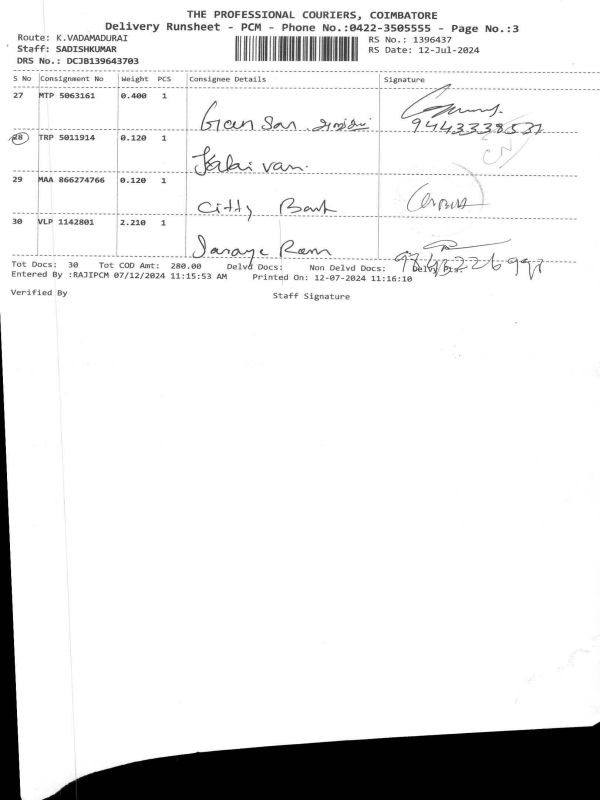 THE PROFESSIONAL COURIERS, COIMBATORE
Delivery Runsheet - PCM - Phone No.:0422-3505555 - Page No.:3
Route: K.VADAMADURAI RS No.: 1396437
Staff: SADISHKUMAR RS Date: 12-Jul-2024
DRS No.: DCJB139643703
S No Consignment No Weight PCS Consignee Details Signature
27 MTP 5063161 0.400 1
9443338537
28 TRP 5011914 0.120 1
Kalai van.
29 MAA 866274766 0.120 1
Citty Bank
30 VLP 1142801 2.210 1
Ram
Tot Docs: 30 Tot COD Amt: 280.00 Delvd Docs: Non Delvd Docs:
Entered By :RAJIPCM 07/12/2024 11:15:53 AM Printed On: 12-07-2024 11:16:10
Verified By Staff Signature